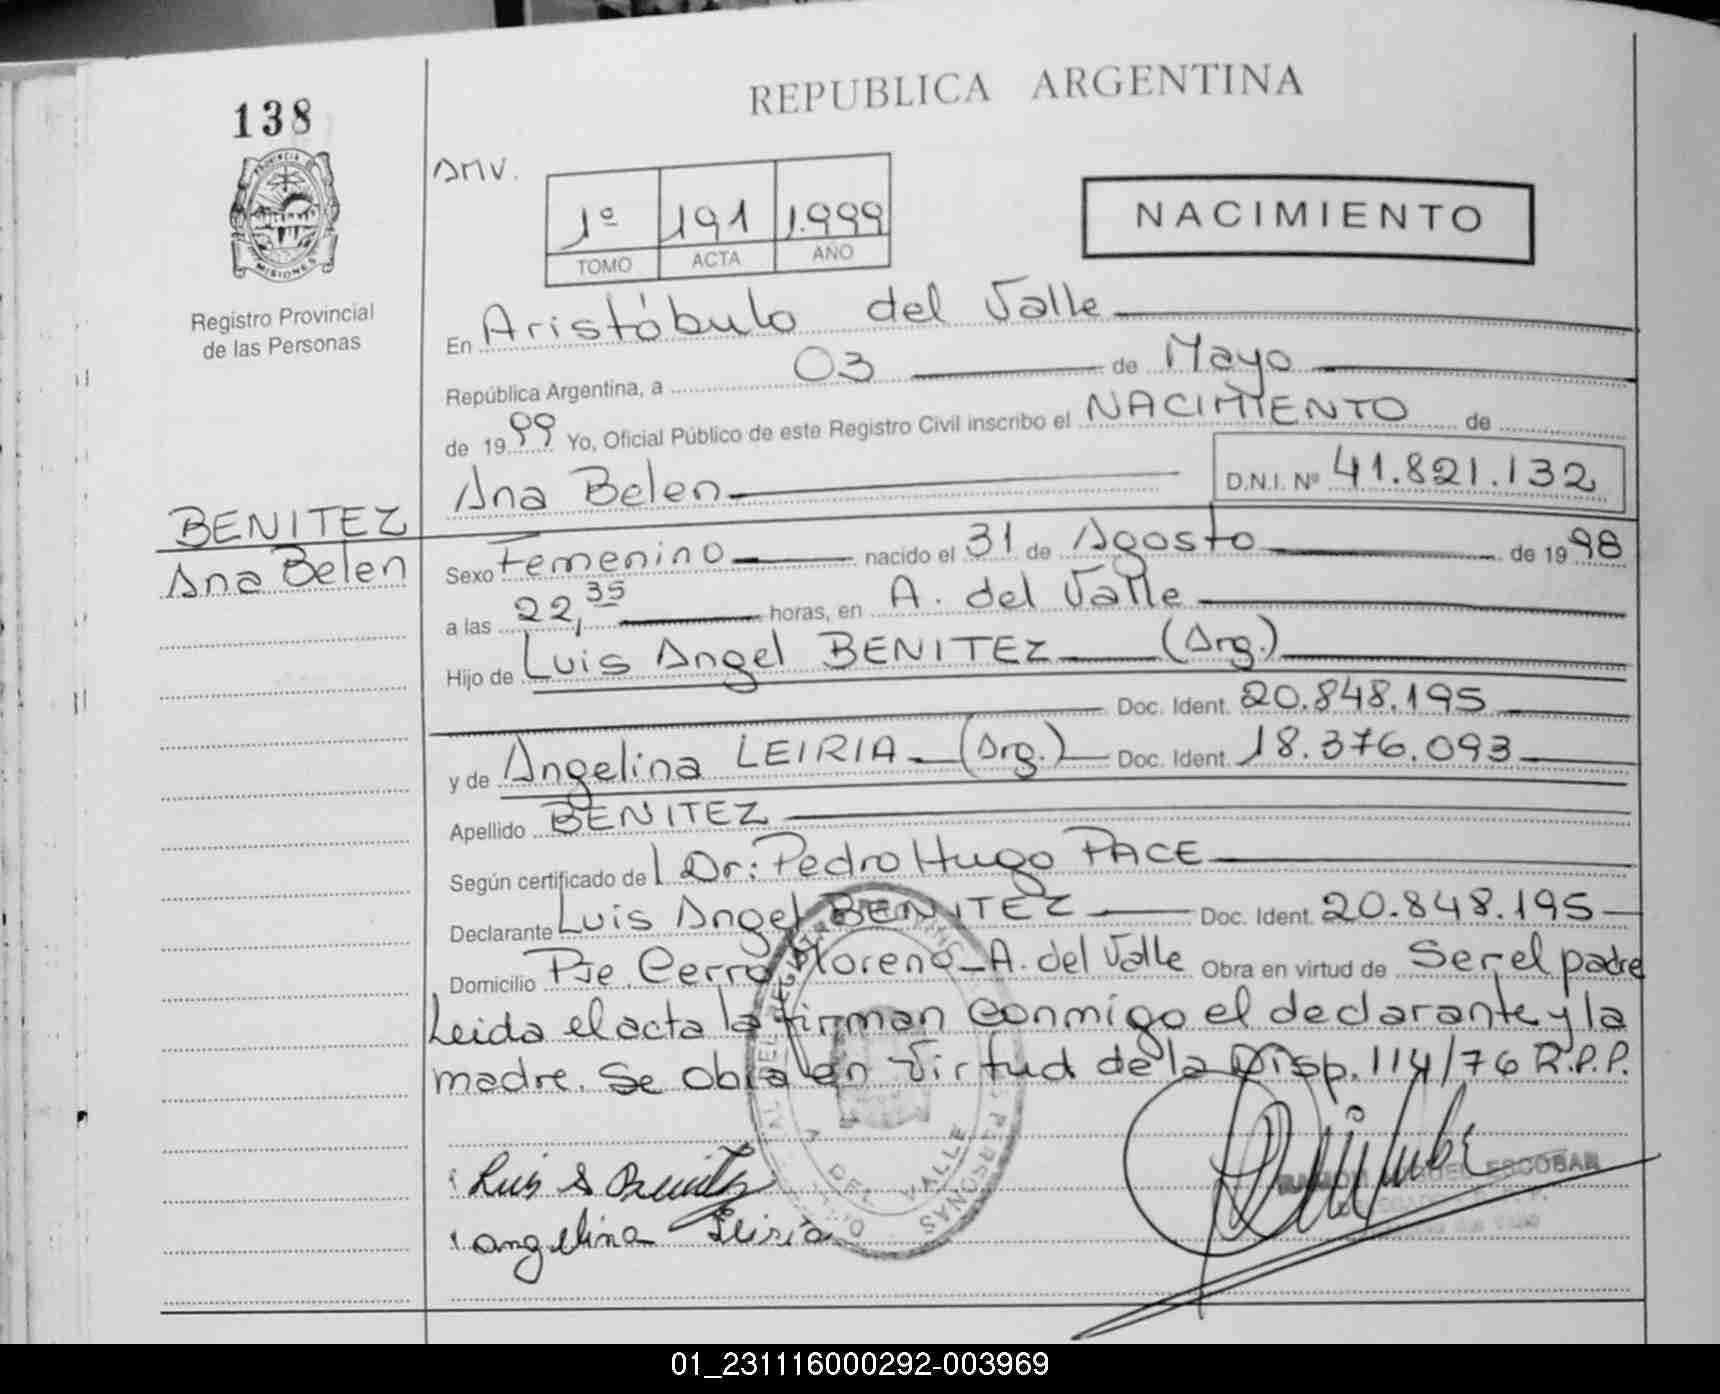 138
REPUBLICA ARGENTINA
PROVINCIA DE
MISIONES
Registro Provincial
de las Personas
AMV.
1º 191 1.999
TOMO ACTA AÑO
NACIMIENTO
En Aristóbulo del Valle
República Argentina, a 03 de Mayo
de 1999 Yo, Oficial Público de este Registro Civil inscribo el NACIMIENTO de
Ana Belen D.N.I. Nº 41.821.132
BENITEZ
Ana Belen
Sexo Femenino nacido el 31 de Agosto de 1998
a las 22,35 horas, en A. del Valle
Hijo de Luis Angel BENITEZ (Arg.)
Doc. Ident. 20.848.195
y de Angelina LEIRIA (Arg.) Doc. Ident. 18.376.093
Apellido BENITEZ
Según certificado del Dr: Pedro Hugo PACE
Declarante Luis Angel BENITEZ Doc. Ident. 20.848.195
Domicilio Pje. Cerro Moreno-A. del Valle Obra en virtud de Ser el padre
Leida el acta la firman conmigo el declarante y la
madre. Se obra en virtud de la Disp. 114/76 R.P.P.
A. DEL VALLE
PERSONAS
Luis A Benitez
angelina Leiria
MIGUEL ESCOBAR
01_231116000292-003969